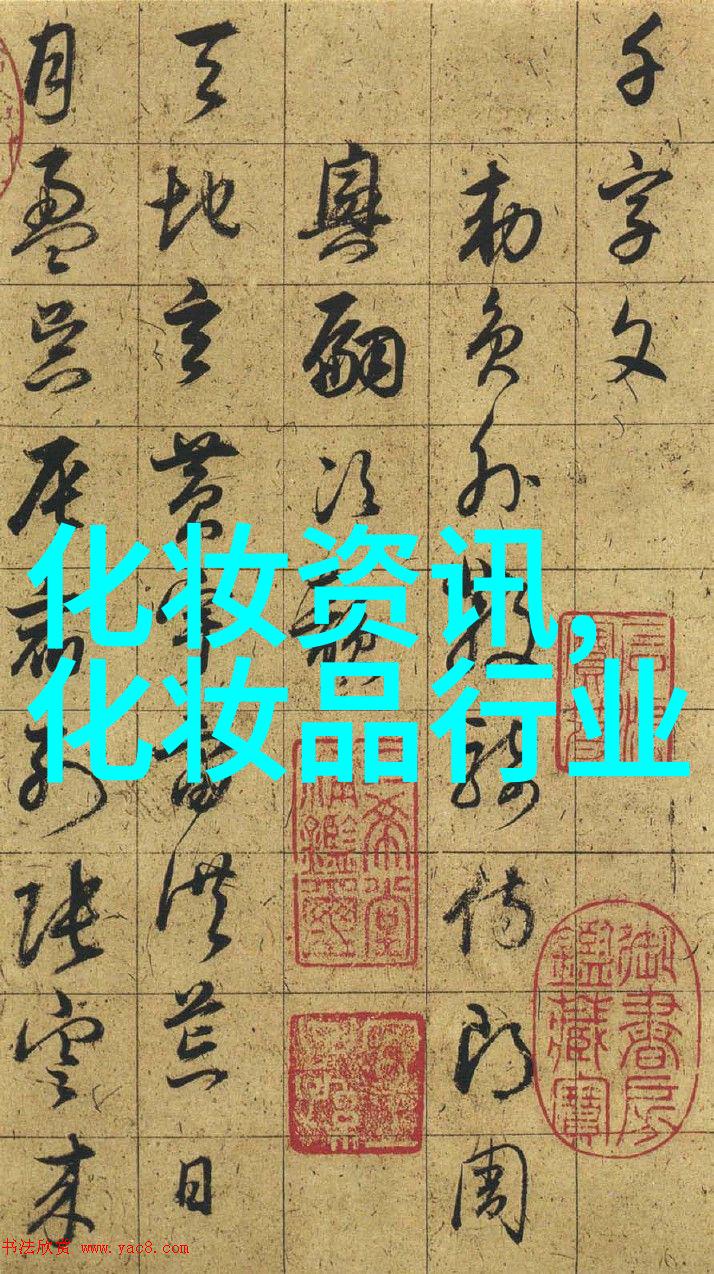 千字文
勅員外散騎侍郎周
興嗣次韻
天地玄黃宇宙洪荒日
月盈昃辰宿列張寒来
化妆资讯,
化妆品行业
御書房鑑藏寶
三希堂精鑑璽
书法欣赏 www.yac8.com